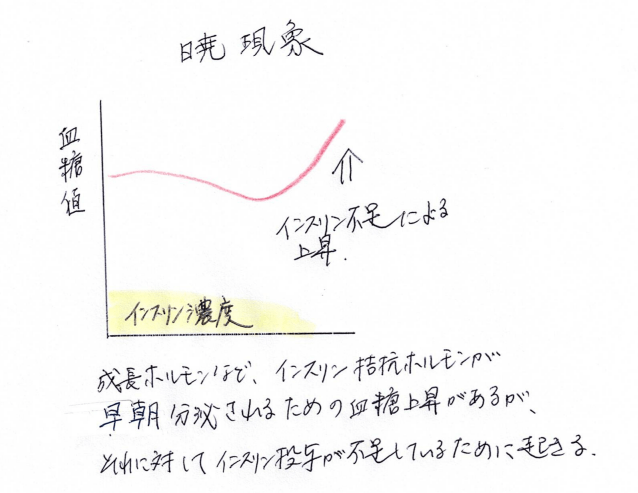 暁現象
血糖値
インスリン不足による
上昇.
インスリン濃度
成長ホルモンなど、インスリン拮抗ホルモンが
早朝分泌されるための血糖上昇があるが、
それに対してインスリン投与が不足しているために起きる.